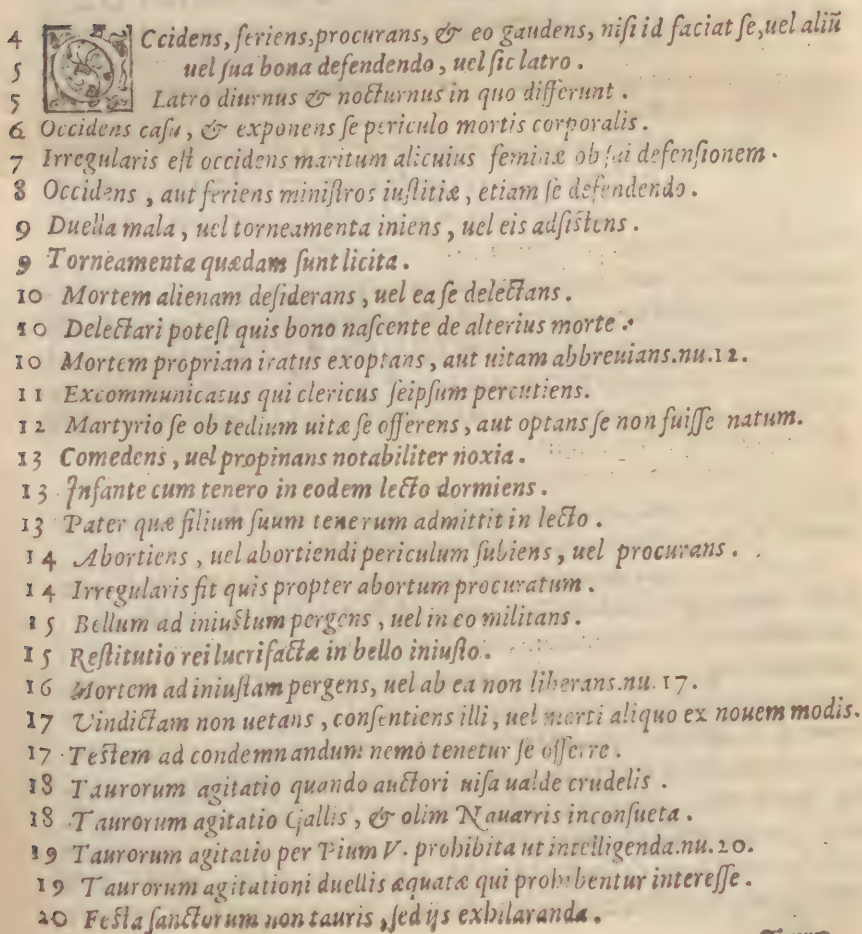 4 OCcidens, feriens, procurans, & eo gaudens, nisi id faciat se, uel aliũ
5 uel sua bona defendendo, uel sic latro.
5 Latro diurnus & nocturnus in quo differunt.
6 Occidens casu, & exponens se periculo mortis corporalis.
7 Irregularis est occidens maritum alicuius feminæ ob sui defensionem.
8 Occidens, aut feriens ministros iustitiæ, etiam se defendendo.
9 Duella mala, uel torneamenta iniens, uel eis adsistens.
9 Torneamenta quædam sunt licita.
10 Mortem alienam desiderans, uel ea se delectans.
10 Delectari potest quis bono nascente de alterius morte.
10 Mortem propriam iratus exoptans, aut uitam abbreuians.nu.12.
11 Excommunicatus qui clericus seipsum percutiens.
12 Martyrio se ob tedium uitæ se offerens, aut optans se non fuisse natum.
13 Comedens, uel propinans notabiliter noxia.
13 Infante cum tenero in eodem lecto dormiens.
13 Pater quæ filium suum tenerum admittit in lecto.
14 Abortiens, uel abortiendi periculum subiens, uel procurans.
14 Irregularis fit quis propter abortum procuratum.
15 Bellum ad iniustum pergens, uel in eo militans.
15 Restitutio rei lucrifactæ in bello iniusto.
16 Mortem ad iniustam pergens, uel ab ea non liberans.nu.17.
17 Vindictam non uetans, consentiens illi, uel morti aliquo ex nouem modis.
17 Testem ad condemnandum nemo tenetur se offerre.
18 Taurorum agitatio quando auctori uisa ualde crudelis.
18 Taurorum agitatio Gallis, & olim Nauarris inconsueta.
19 Taurorum agitatio per Pium V. prohibita ut intelligenda.nu.20.
19 Taurorum agitationi duellis æquatæ qui prohibentur interesse.
20 Festa sanctorum non tauris, sed ijs exhilaranda.